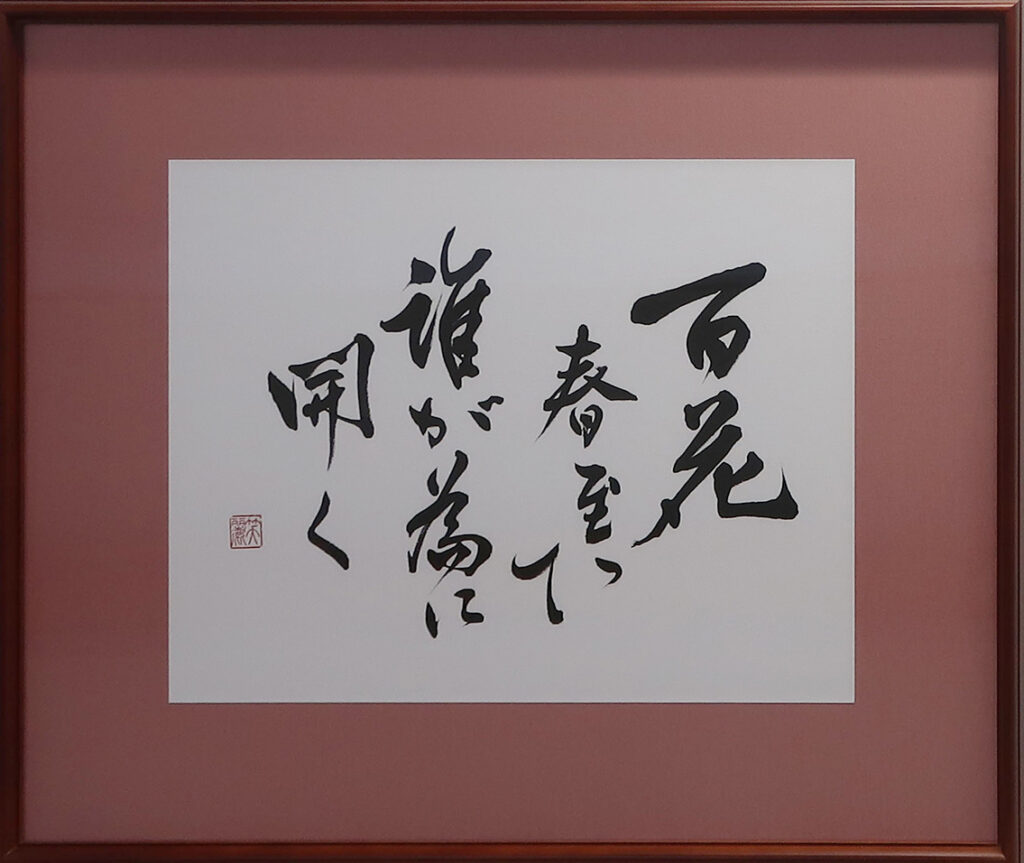 百花
春至って
誰が為に
開く